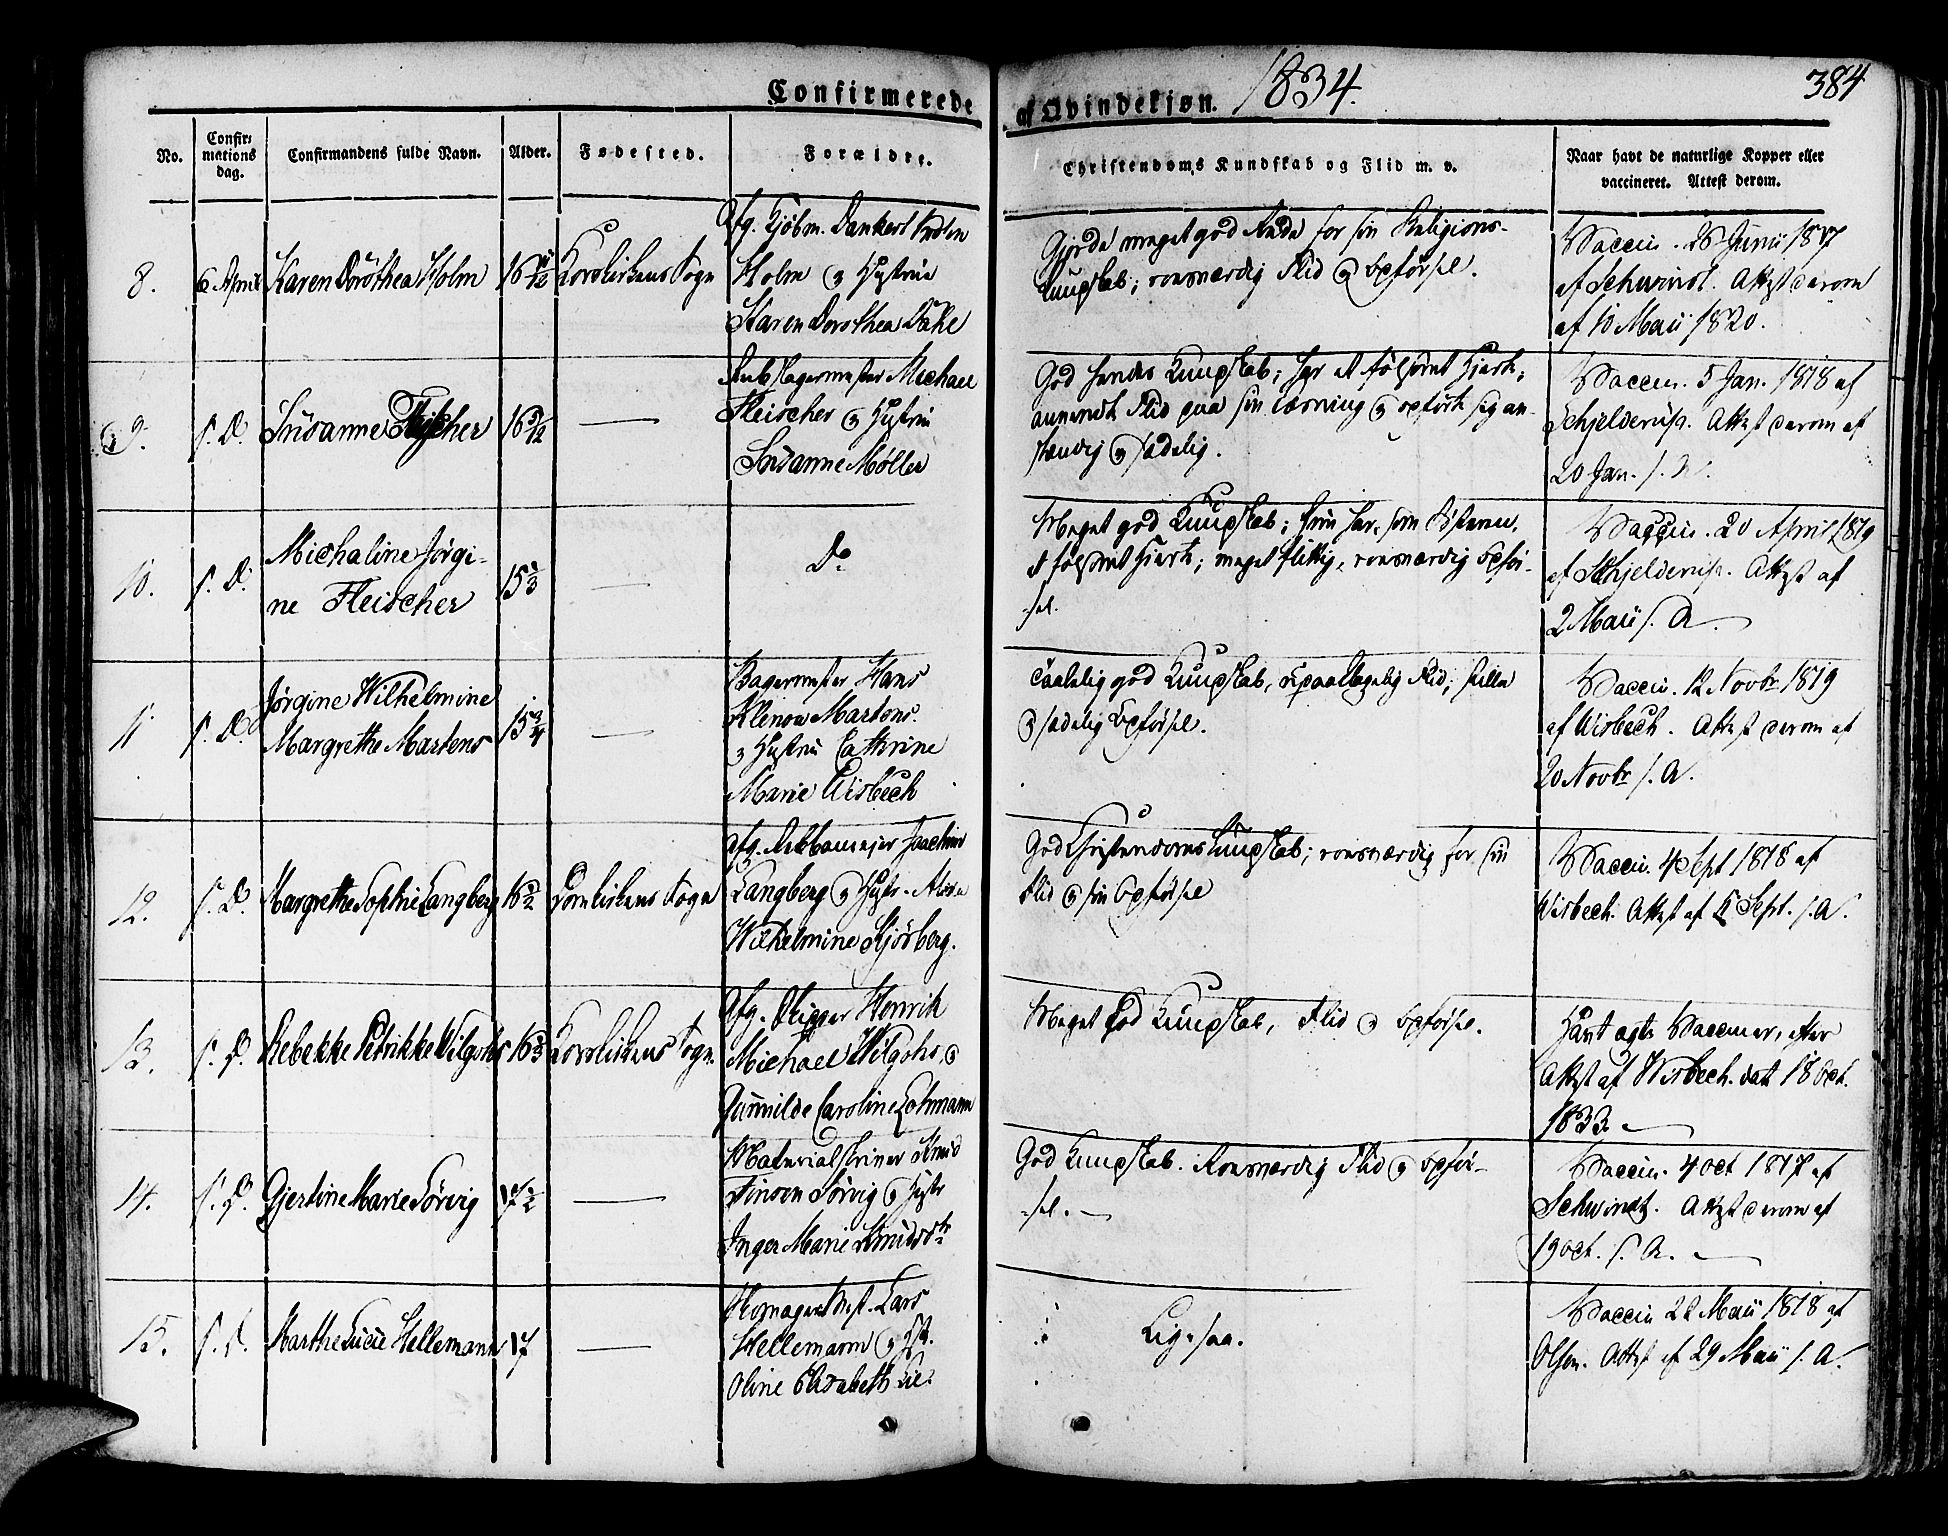 Confirmerede af Qvindekjøn. 1834. 384
No.
Confirmations dag.
Confirmandens fulde Navn.
Alder.
Fødested.
Forældre.
Christendoms Kundskab og Flid m. v.
Naar havt de naturlige Kopper eller vaccineret. Attest derom.
8.
6 April
Karen Dorothea Holm
16 11/12
Korskirkens Sogn
Afg. Kjøbm. Dankert
Holm og Hustrue
Karen Dorothea Dahl
Gjorde meget god Rede for sin Religions-
kundskab; roesværdig Flid og Opførsel.
Vaccin. 26 Junii 1817
af Schwindt. Attest derom
af 10 Maii 1820.
9.
s. D.
Susanne Fleischer
16 5/12
Rebslagermester Michael
Fleischer og Hustrue
Susanne Møller
God hendes Kundskab; har et følsomt Hjerte;
anvendt Flid paa sin Læsning og opførte sig an-
stændig og sædelig.
Vaccin. 5 Jan. 1818 af
Schjelderup. Attest derom af
20 Jan. s. A.
10.
s. D.
Michaline Jørgi-
ne Fleischer
15
Do
Meget god Kundskab; hun har, som Søsteren,
et følsomt Hjerte; meget flittig, roesværdig Opfør-
sel.
Vaccin. 20 April 1819
af Schjelderup. Attest af
2 Maii s. A.
11.
s. D.
Jørgine Wilhelmine
Margrethe Martens
15 3/4
Bagermester Hans
Klenow Martens
og Hustrue Cathrine
Marie Wisbech
Taalelig god Kundskab, upaaklagelig Flid; stille
og sædelig Opførsel.
Vaccin. 12 Novbr 1819
af Wisbech. Attest derom af
20 Novbr s. A.
12.
s. D.
Margrethe Sophie Langberg
16 1/2
Domkirkens Sogn
Afg. Joachim
Langberg og Hustr.
Wilhelmine Sjøberg.
God Christendomskundskab; roesværdig for sin
Flid og sin Opførsel
Vaccin. 4 Sept 1818 af
Wisbech. Attest af Sept. s. A.
13.
s. D.
Rebekke Petrikke Wilgohs
16
Korskirkens Sogn
Afg. Skipper Henrik
Michael Wilgohs og
Gunnilde Caroline Lohmann
Meget god Kundskab, Flid og Opførsel.
Havt ægte Vacciner, efter
Attest af Wisbech dat. 18 Oct.
1833.
14.
s. D.
Gjertine Marie Sørvig
17 1/2
Materialskriver Knud
Jinsen Sørvig og Hustr
Inger Marie Knudsdtr
God Kundskab. Roesværdig Flid og Opfør-
sel.
Vaccin. 4 Oct 1817 af
Schwindt. Attest derom af
19 Oct. s. A.
15.
s. D.
Marthe Lucie Hellemann
17
Skomagermest. Lars
Hellemann og Hst.
Oline Elisabeth Lie
Ligesaa.
Vaccin 22 Maii 1818 af
Olsen. Attest af 29 Maii s. A.